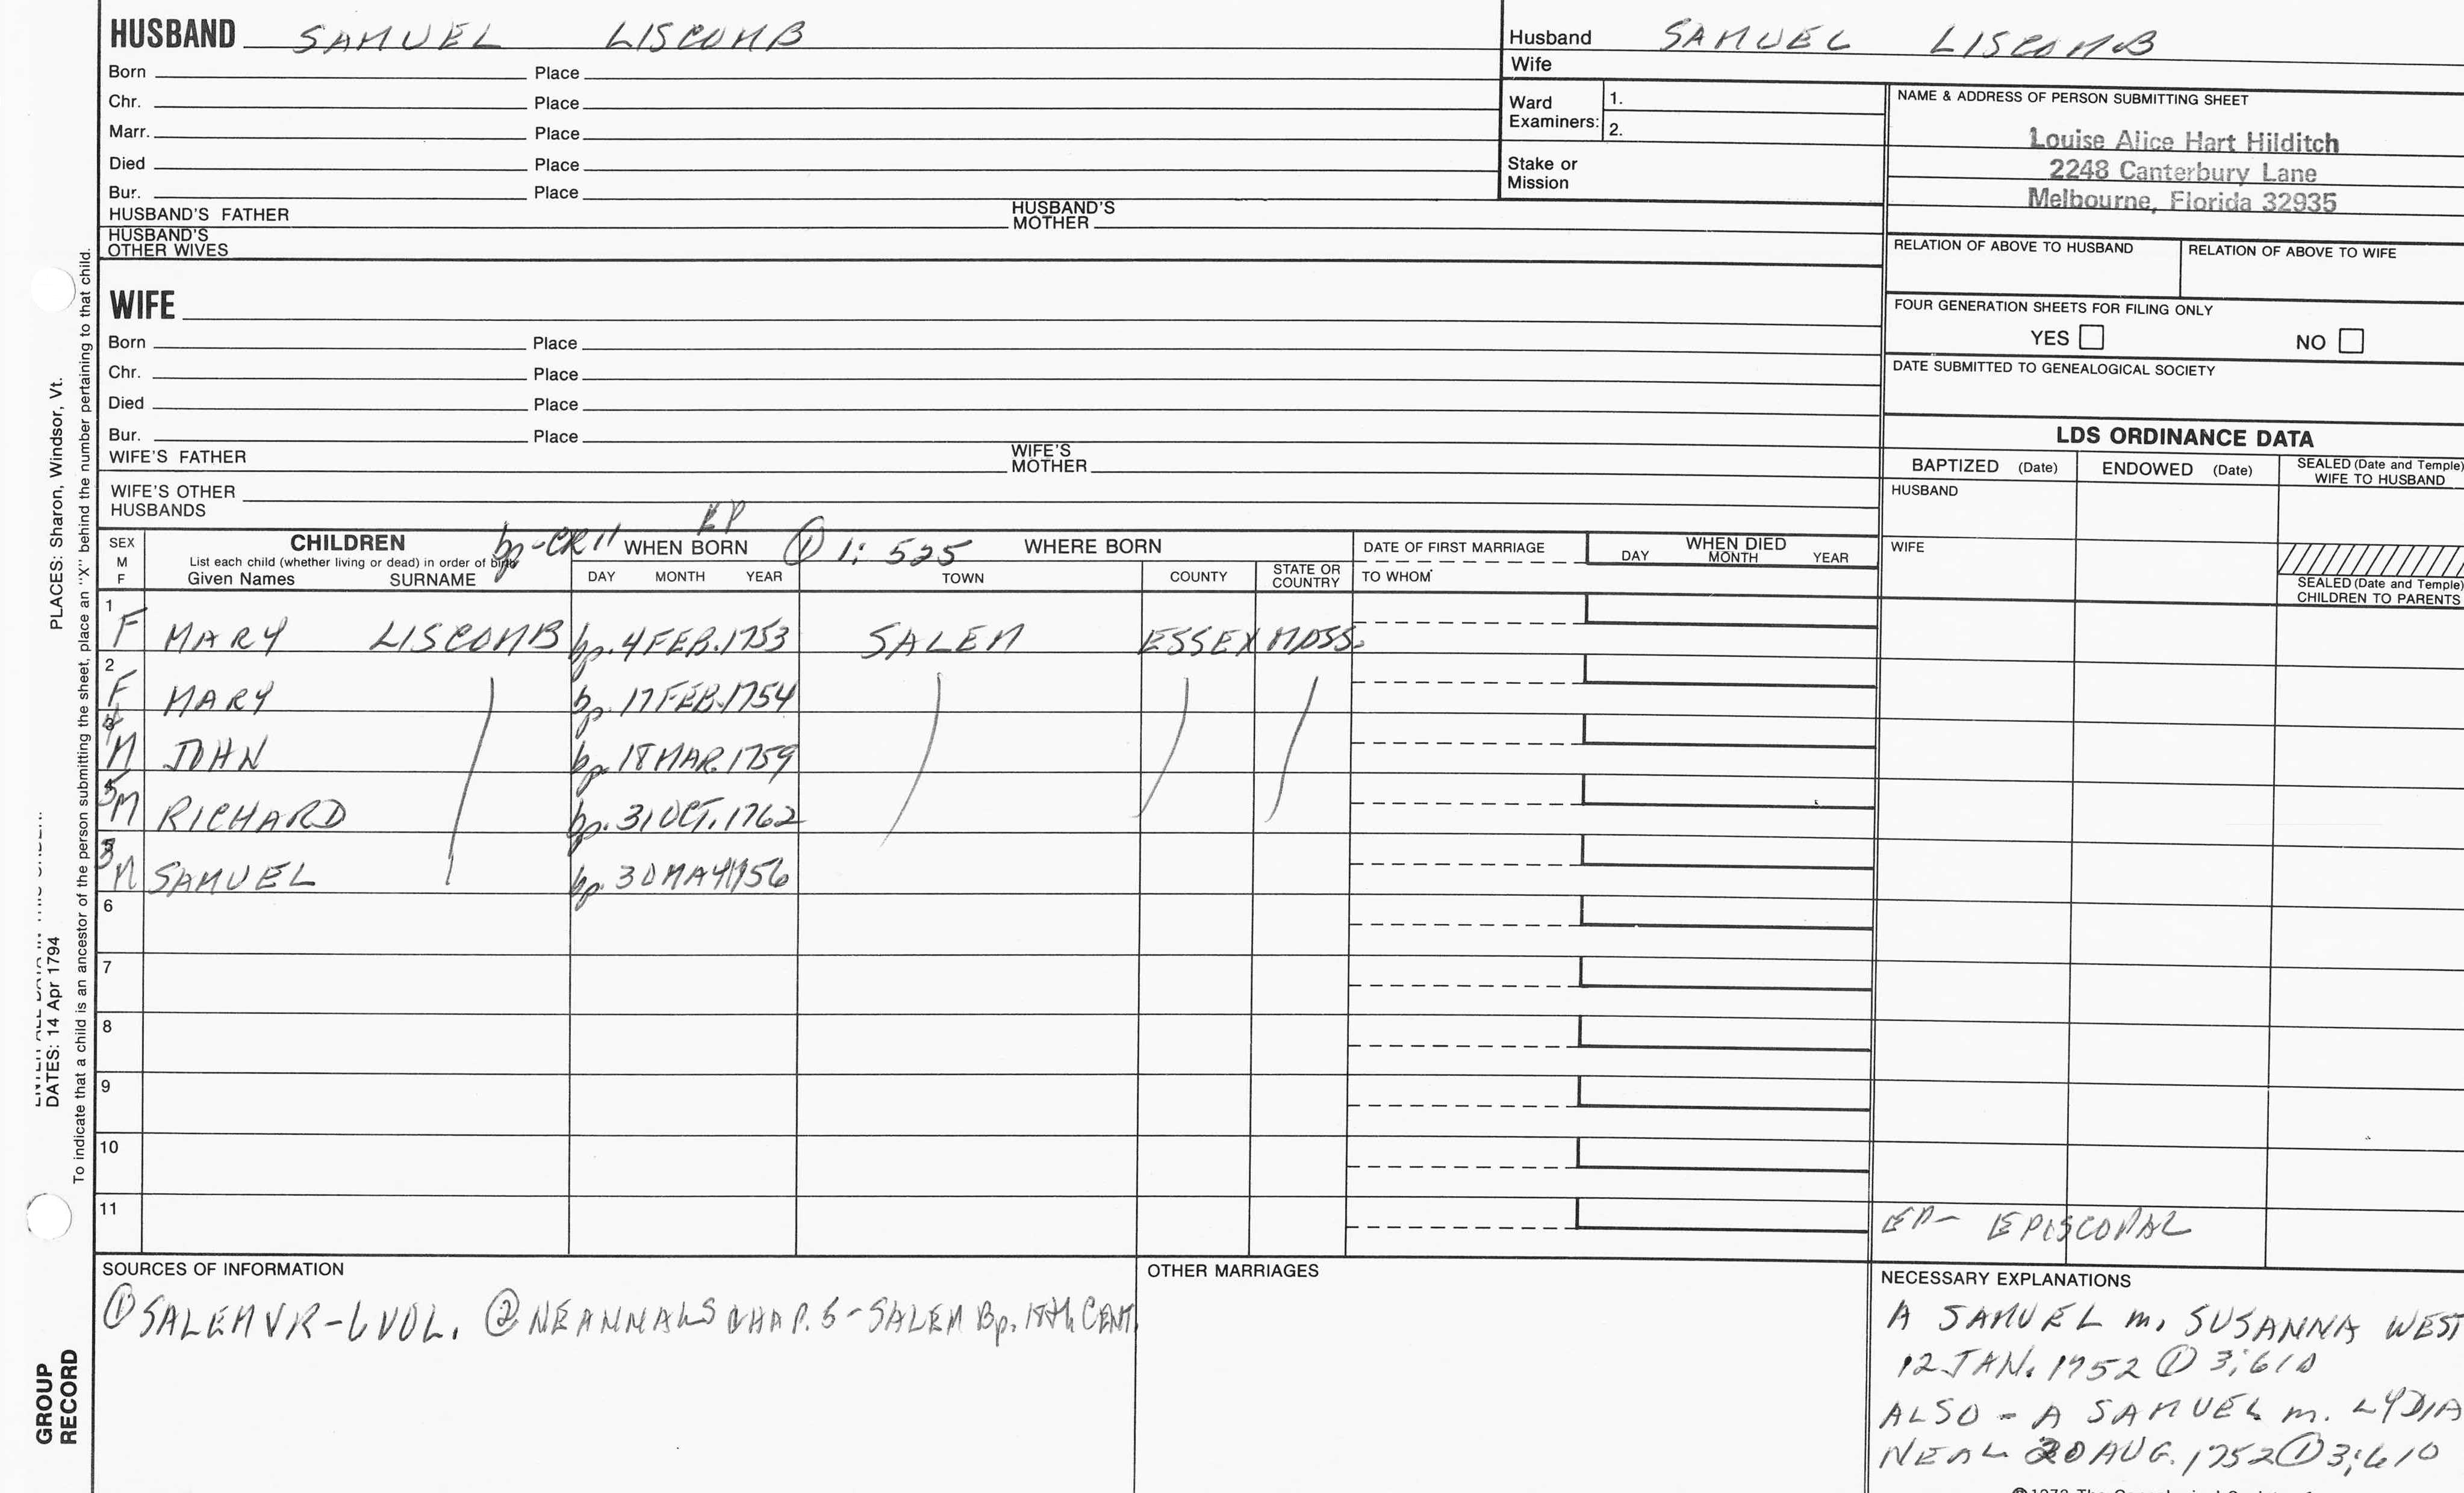 HUSBAND SAMUEL LISCOMB
Born Place
Chr. Place
Marr. Place
Died Place
Bur. Place
HUSBAND'S FATHER HUSBAND'S MOTHER
HUSBAND'S OTHER WIVES
Husband SAMUEL LISCOMB
Wife
Ward Examiners: 1.
2.
Stake or Mission
NAME & ADDRESS OF PERSON SUBMITTING SHEET
Louise Alice Hart Hilditch
2248 Canterbury Lane
Melbourne, Florida 32935
RELATION OF ABOVE TO HUSBAND RELATION OF ABOVE TO WIFE
FOUR GENERATION SHEETS FOR FILING ONLY
YES NO
DATE SUBMITTED TO GENEALOGICAL SOCIETY
WIFE
Born Place
Chr. Place
Died Place
Bur. Place
WIFE'S FATHER WIFE'S MOTHER
WIFE'S OTHER HUSBANDS
LDS ORDINANCE DATA
BAPTIZED (Date) ENDOWED (Date) SEALED (Date and Temple) WIFE TO HUSBAND
HUSBAND
WIFE
SEALED (Date and Temple) CHILDREN TO PARENTS
SEX M F
CHILDREN
List each child (whether living or dead) in order of birth
Given Names SURNAME
WHEN BORN ① 1: 525 WHERE BORN
DAY MONTH YEAR TOWN COUNTY STATE OR COUNTRY
DATE OF FIRST MARRIAGE
TO WHOM
WHEN DIED
DAY MONTH YEAR
1 F MARY LISCOMB bp. 4 FEB. 1753 SALEM ESSEX MASS.
2 F MARY bp. 17 FEB. 1754
4 M JOHN bp. 18 MAR. 1759
5 M RICHARD bp. 31 OCT. 1762
3 M SAMUEL bp. 30 MAY 1756
6
7
8
9
10
11
EP- EPISCOPAL
SOURCES OF INFORMATION
① SALEM VR-6 VOL. ② NE ANNALS CHAP. 5 - SALEM Bp. 18th CENT.
OTHER MARRIAGES
NECESSARY EXPLANATIONS
A SAMUEL m. SUSANNA WEST
12 JAN. 1752 ① 3:610
ALSO - A SAMUEL m. LYDIA
NEAL 20 AUG. 1752 ① 3:610
PLACES: Sharon, Windsor, Vt.
DATES: 14 Apr 1794
To indicate that a child is an ancestor of the person submitting the sheet, place an "X" behind the number pertaining to that child.
GROUP RECORD